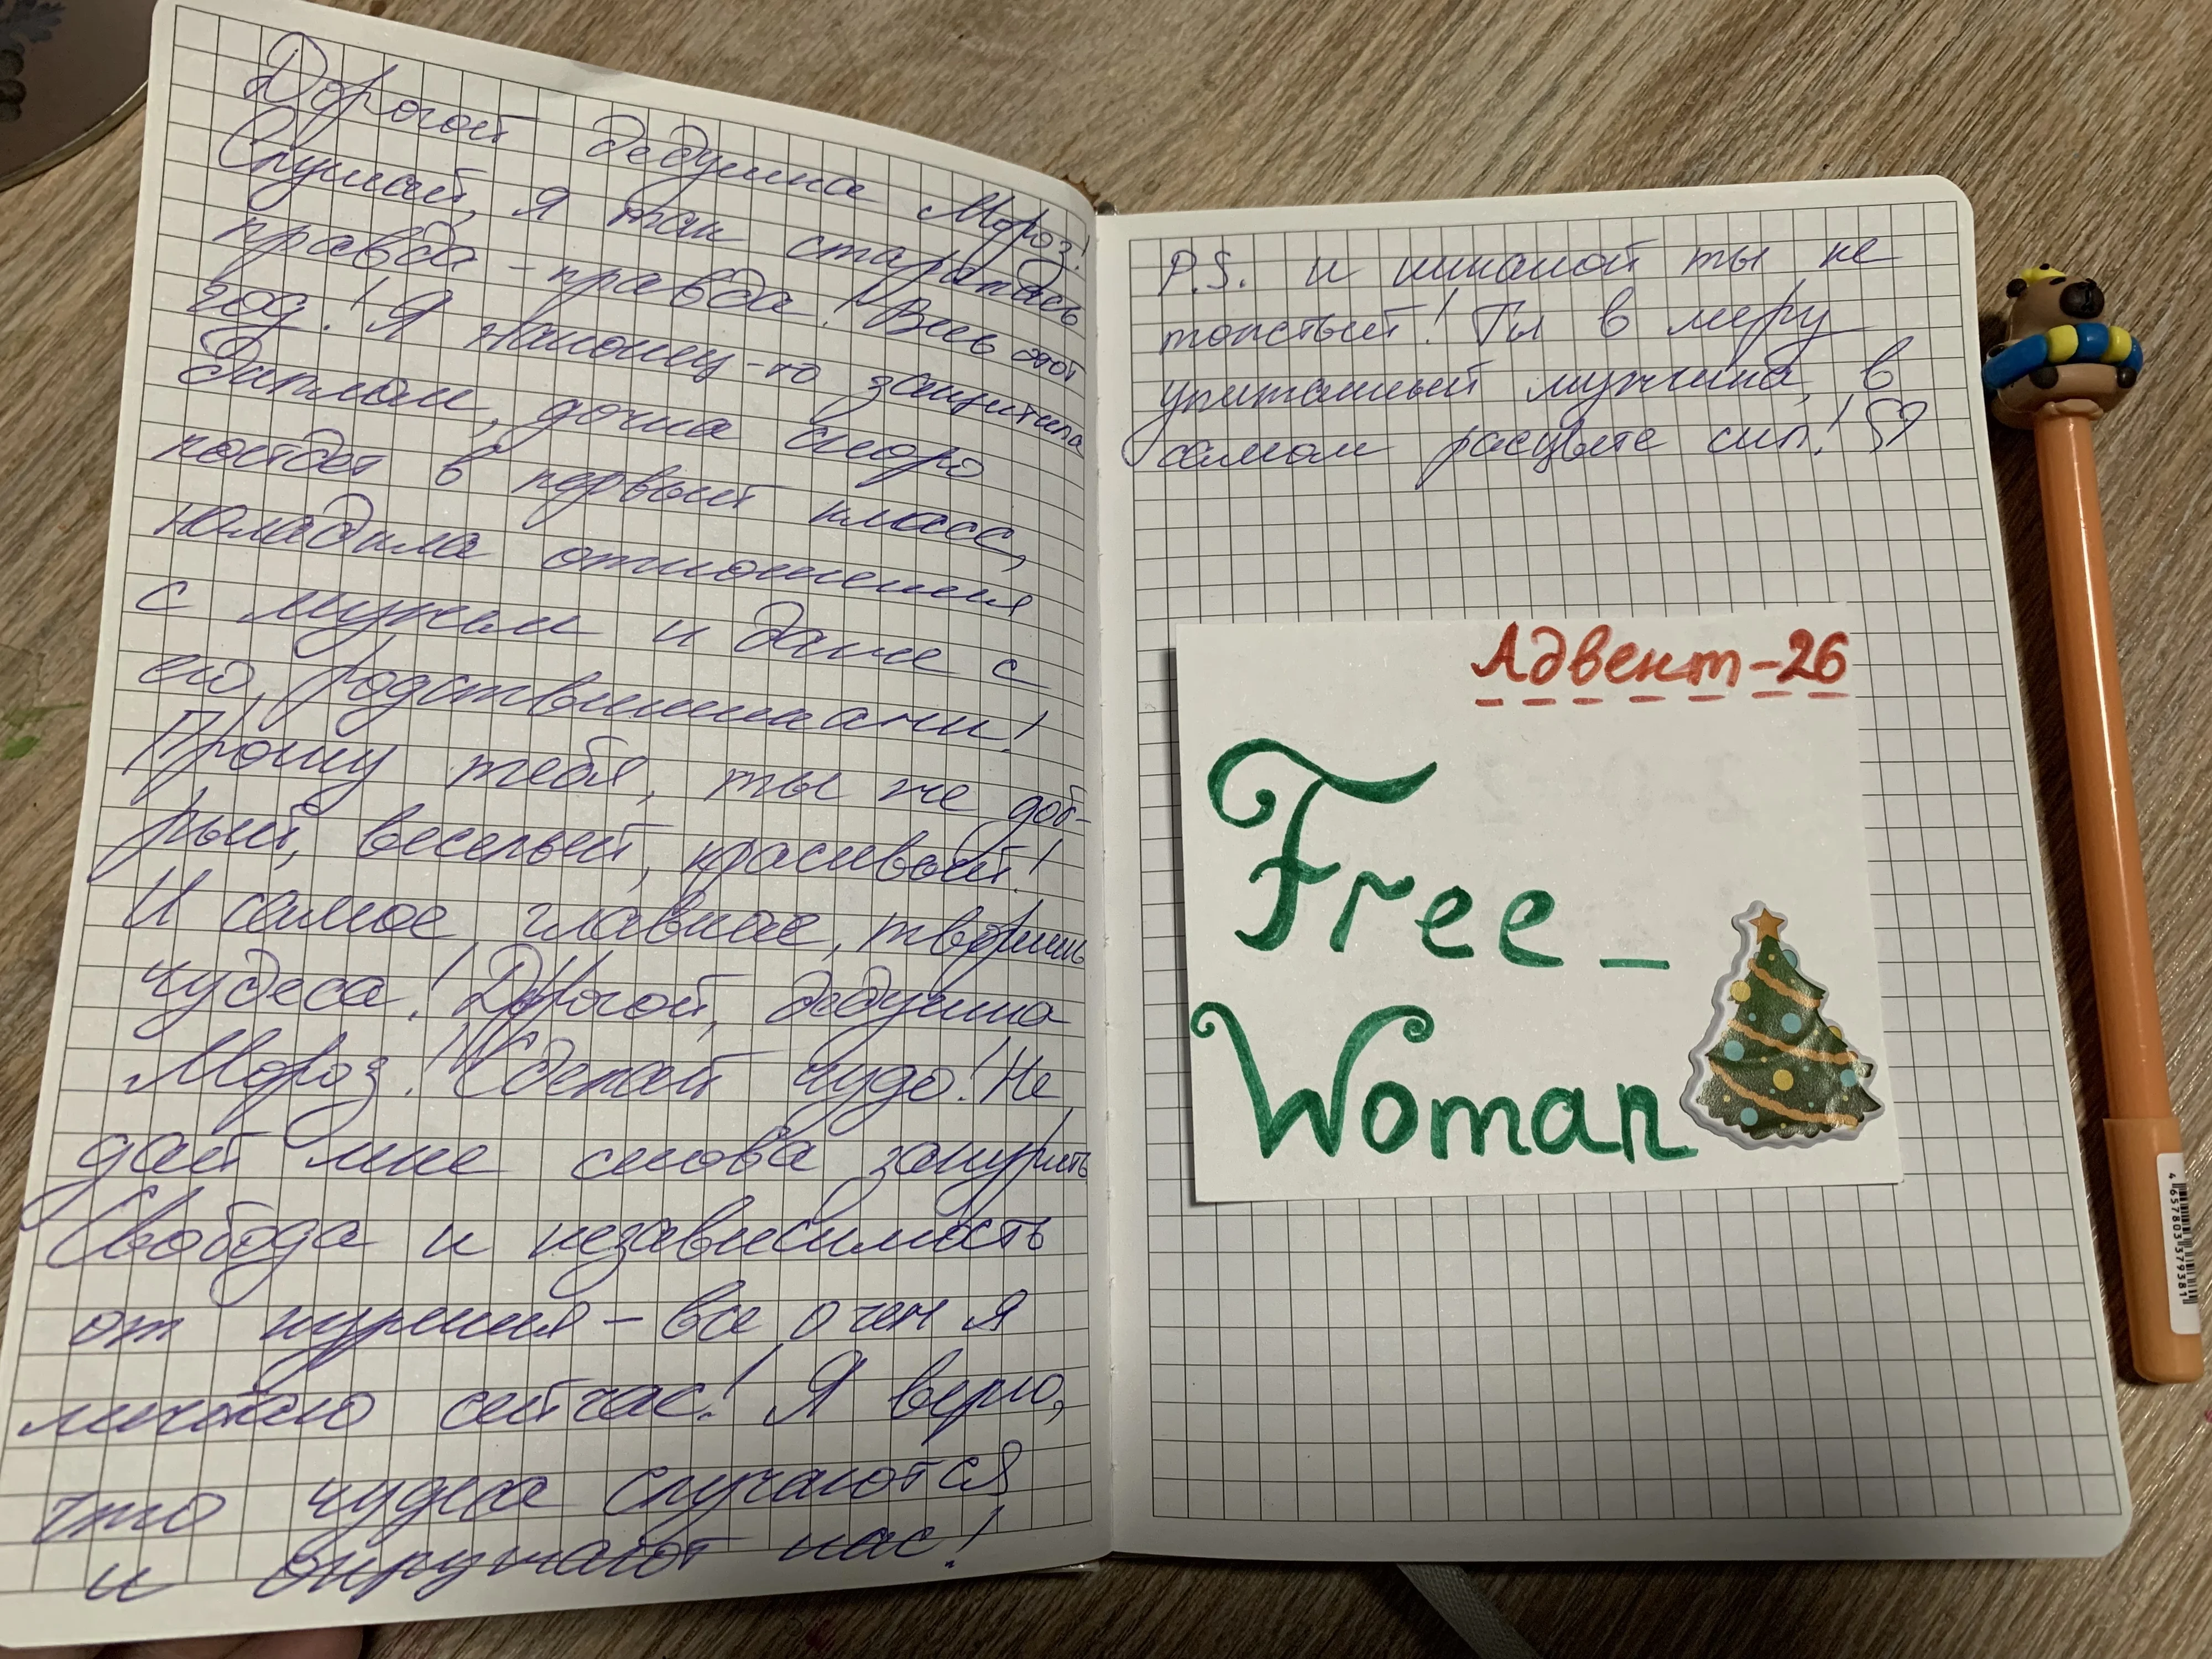 Дорогой дедушка Мороз!
Слушай, я так старалась
правда-правда! Весь этот
год! Я наконец-то защитила
диплом, дочка скоро
пойдет в первый класс,
наладила отношения
с мужем и даже с
его родственниками!
Прошу тебя, ты же доб-
рый, веселый, красивый!
И самое главное, творишь
чудеса! Дорогой, дедушка
Мороз! Сделай чудо! Не
дай мне снова закурить
Свобода и независимость
от курения - все о чем я
мечтаю сейчас! Я верю,
что чудеса случаются
и окружают нас!
P.S. и никакой ты не
толстый! Ты в меру
упитанный мужчина, в
самом расцвете сил! ♡
Адвент-26
Free_
Woman
4657803379381